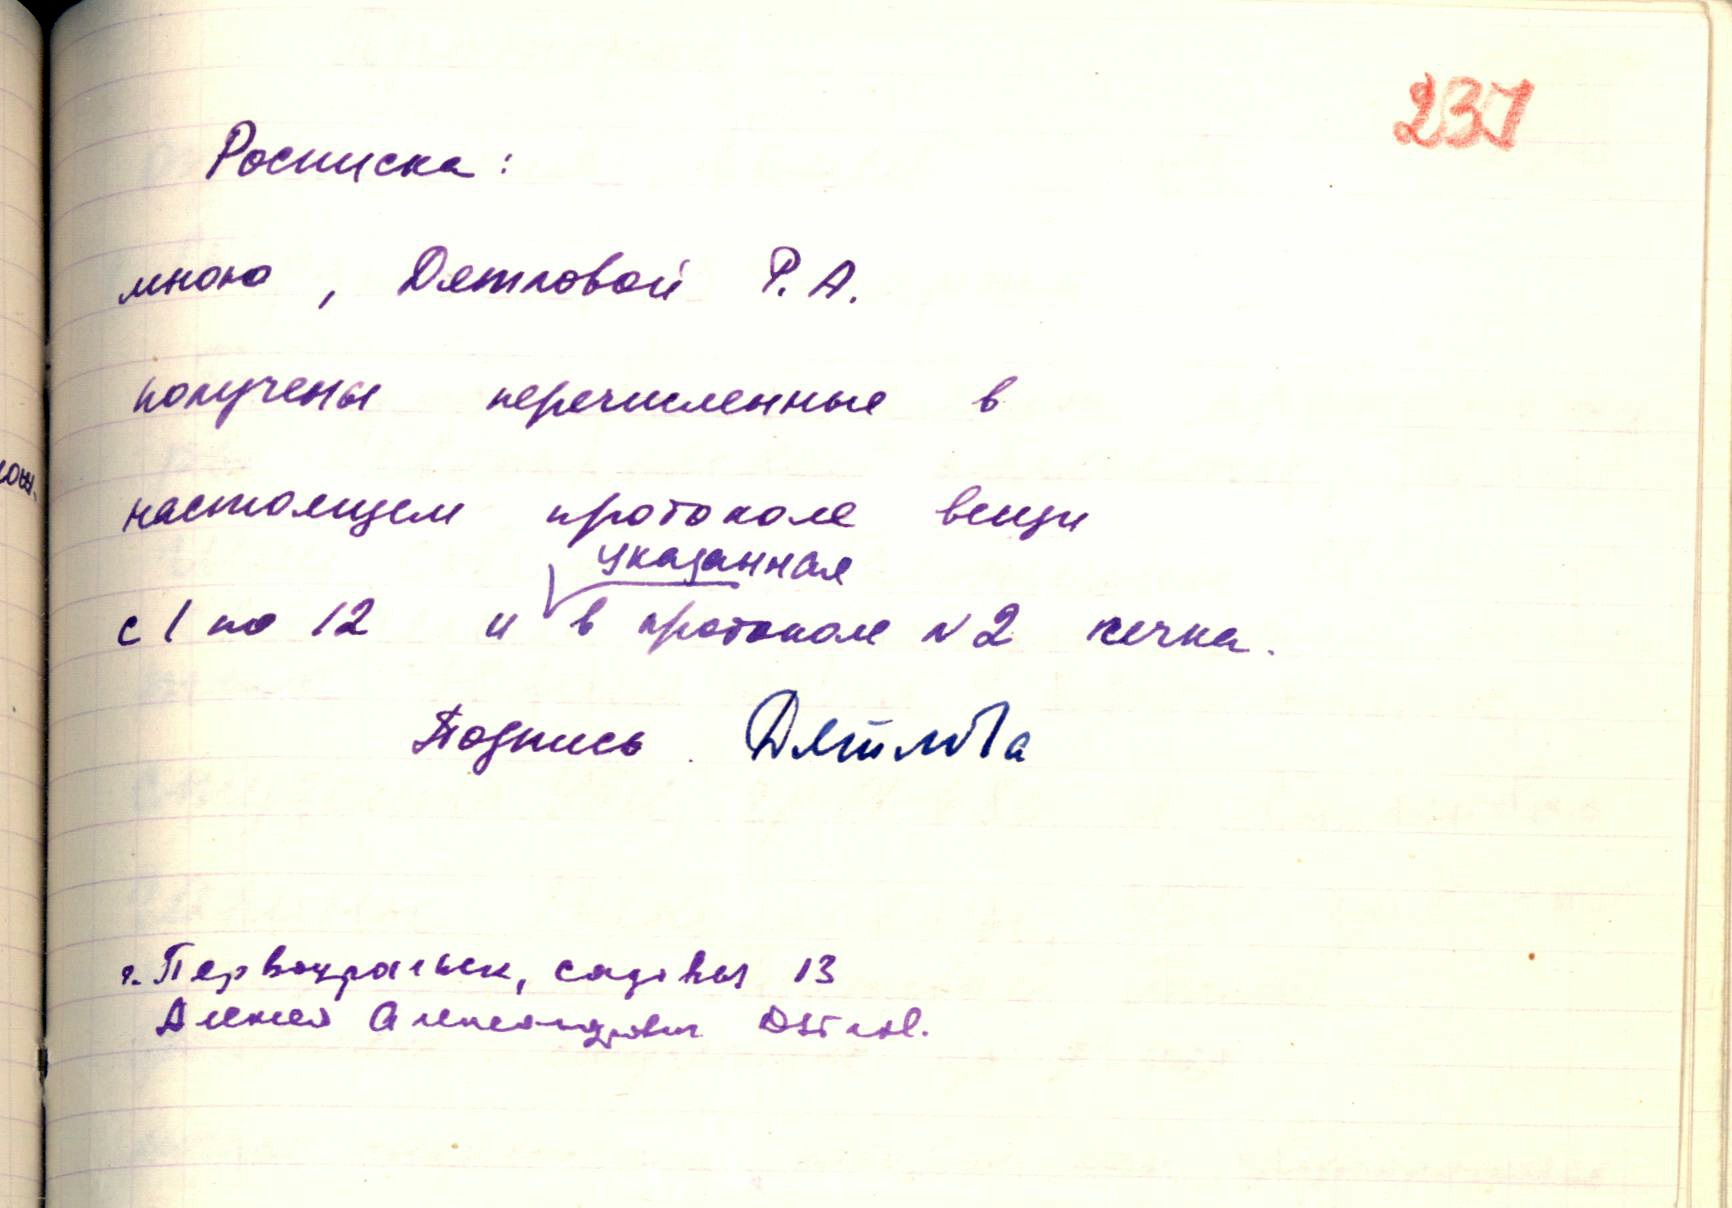 237
Росписка:
мною, Дятловой Р.А.
получены перечисленные в
настоящем протоколе вещи
указанная
с 1 по 12 и в протоколе N2 печка.
Подпись Дятлова
г. Первоуральск, садовая 13
Алексей Александрович Дятлов.